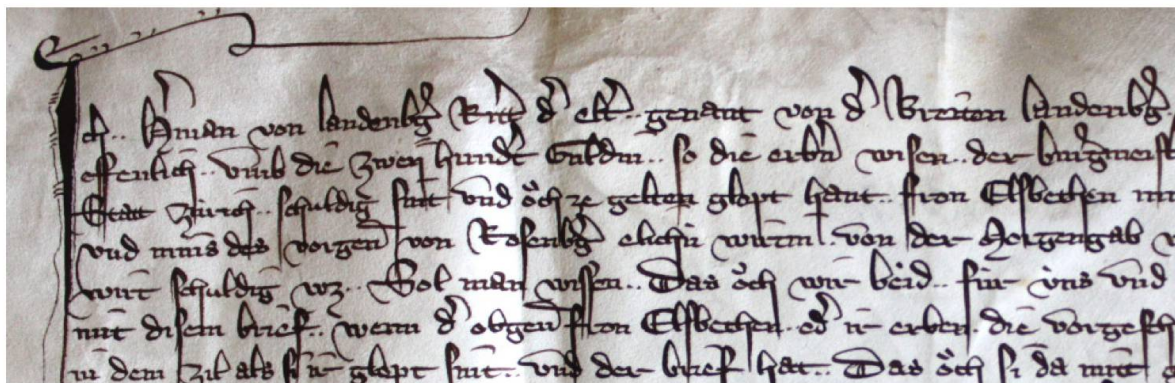 Ich.. Hʼman von Landenbʼg Rittʼ dʼ eltʼ.. genant von dʼ Breiten Landenbʼg
offenlich.. vmb die zweÿ hundʼt Guldin.. so die erbʼn wisen.. der burgʼmeist
Statt Zürich.. schuldig sint vnd öch ze gelten glopt hant. fron Elsbethen
vnd mins des vorgen von Rosenbʼg elichʼn wirtin.. von der Morgengab
wirt schuldig wz.. Sol man wissen.. Das öch wir beid.. für üns vnd
mit disem brief.. wenn dʼ obgen fron Elsbethen. odʼ ir erben. die vorgesch
in dem zil als si ir glopt sint.. vnd der brief hat.. Das öch si da mitt